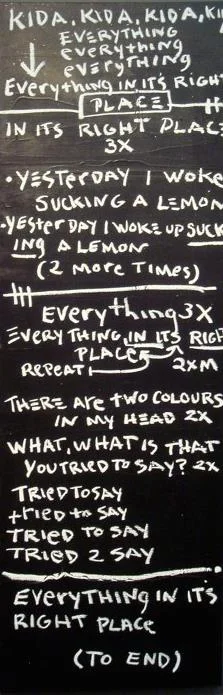 KIDA, KIDA, KIDA, KI
EVERYTHING
everything
eveRYTHING
Everything IN ITS RIGHT
PLACE
IN ITS RIGHT PLACE
3X
• YESTERDAY I WOKE
SUCKING A LEMON
• YESTERDAY I WOKE UP SUCK
ING A LEMON
(2 MORE TIMES)
EveryTHING 3X
EVERYTHING IN ITS RIGH
PLACE
REPEAT 2XM
THERE ARE TWO COLOURS
IN MY HEAD 2X
WHAT, WHAT IS THAT
YOU TRIED TO SAY? 2X
TRIED TO SAY
tried to SAY
TRIED TO SAY
TRIED 2 SAY
EVERYTHING IN IT'S
RIGHT PLACE
(TO END)